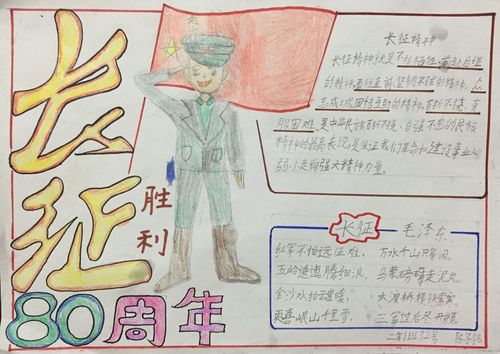 长征
胜利
80周年
长征精神
长征精神就是不怕牺牲、前赴后继
的精神,勇往直前,坚韧不拔的精神,众
志成城,团结互助的精神,百折不挠、克
服困难,是中华民族百折不挠、自强不息的民族
精神的最高表现,是保证我们革命和建设事业从
弱小走向强大精神力量。
长征 毛泽东
红军不怕远征难,万水千山只等闲。
五岭逶迤腾细浪,乌蒙磅礴走泥丸
金沙水拍云崖暖,大渡桥横铁索寒
更喜岷山千里雪,三军过后尽开颜
二年 班32号